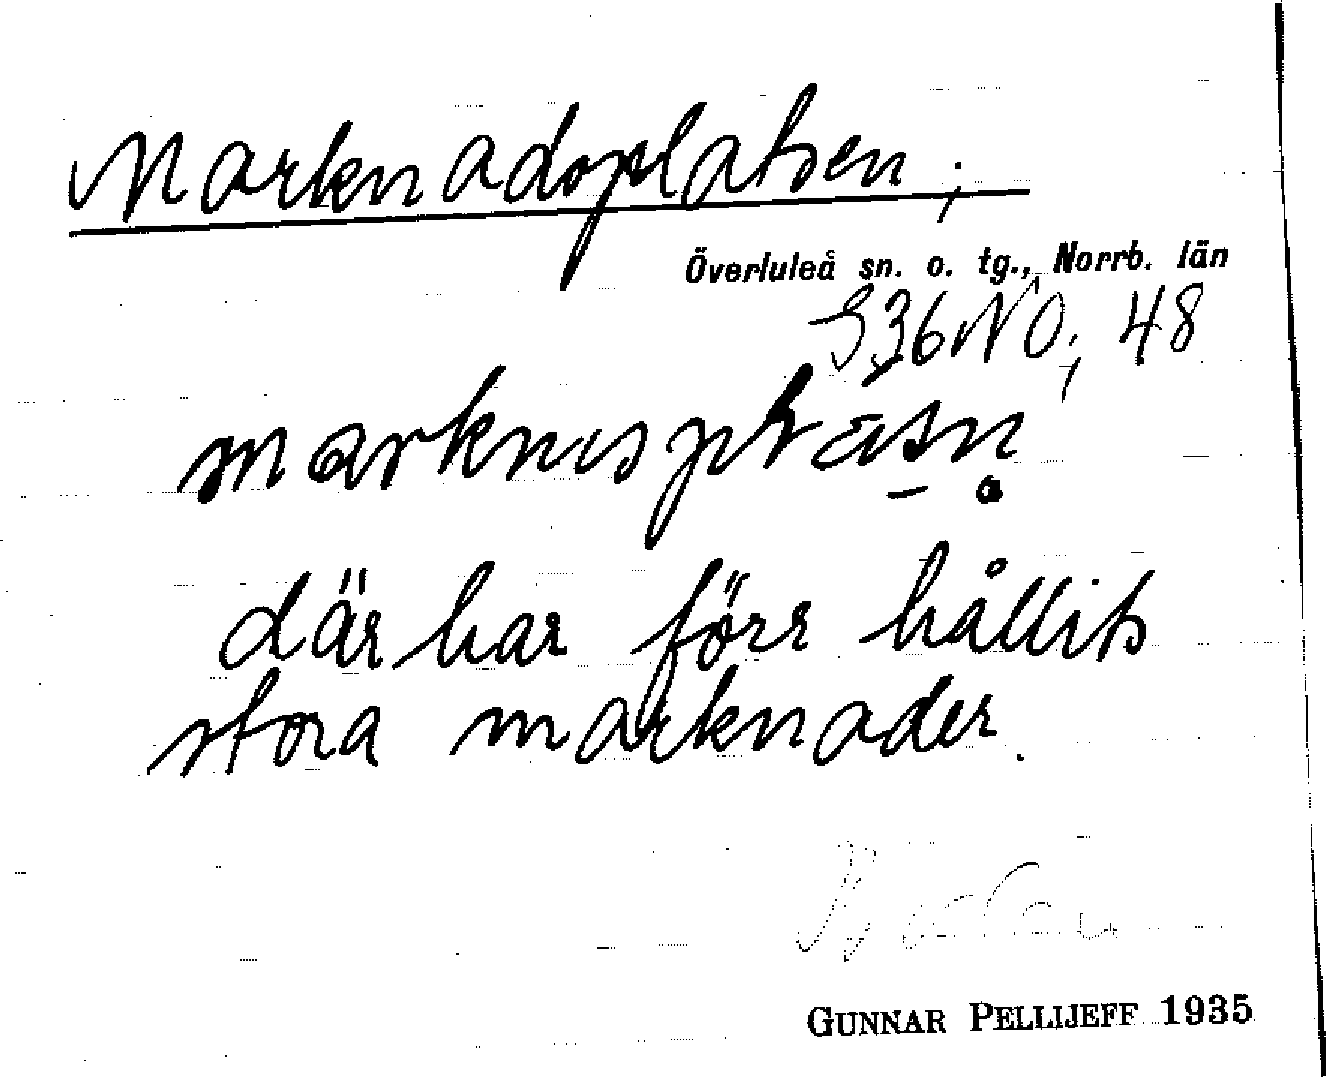 Marknadsplatsen;
Överluleå sn. o. tg., Norrb. län
S36NO; 48
marknisplasn
där har förr hållits
stora marknader.
GUNNAR PELLIJEFF 1935